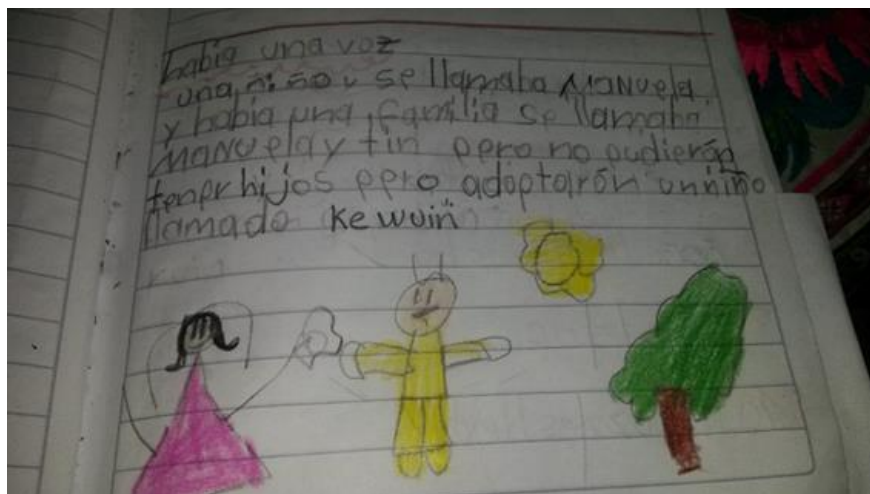 había una voz
una niño y se llamaba Manuela
y había una familia se llamaba
Manuela y tin pero no pudierón
tenpr hijos pero adoptarón un niño
llamado kewuiñ